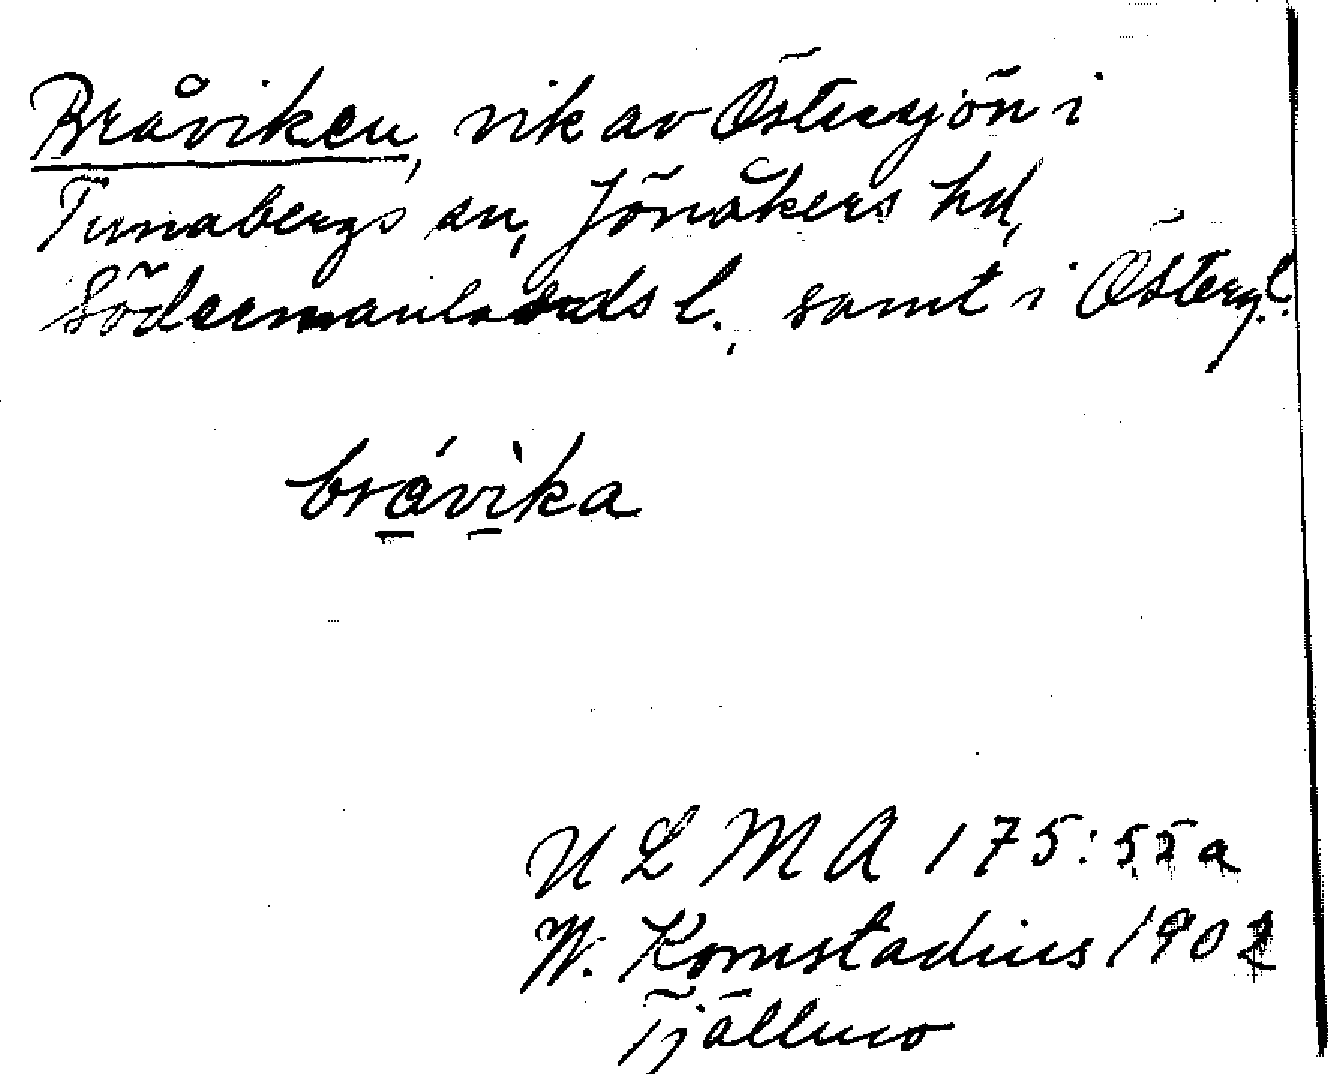 Bråviken, vik av Östersjön i
Tunabergs sn, Jönåkers hd,
Södermanlands l., samt i Österg.l.
bråvika
ULMA 175:55a
W. Kornstadius 1902
Tjällmo